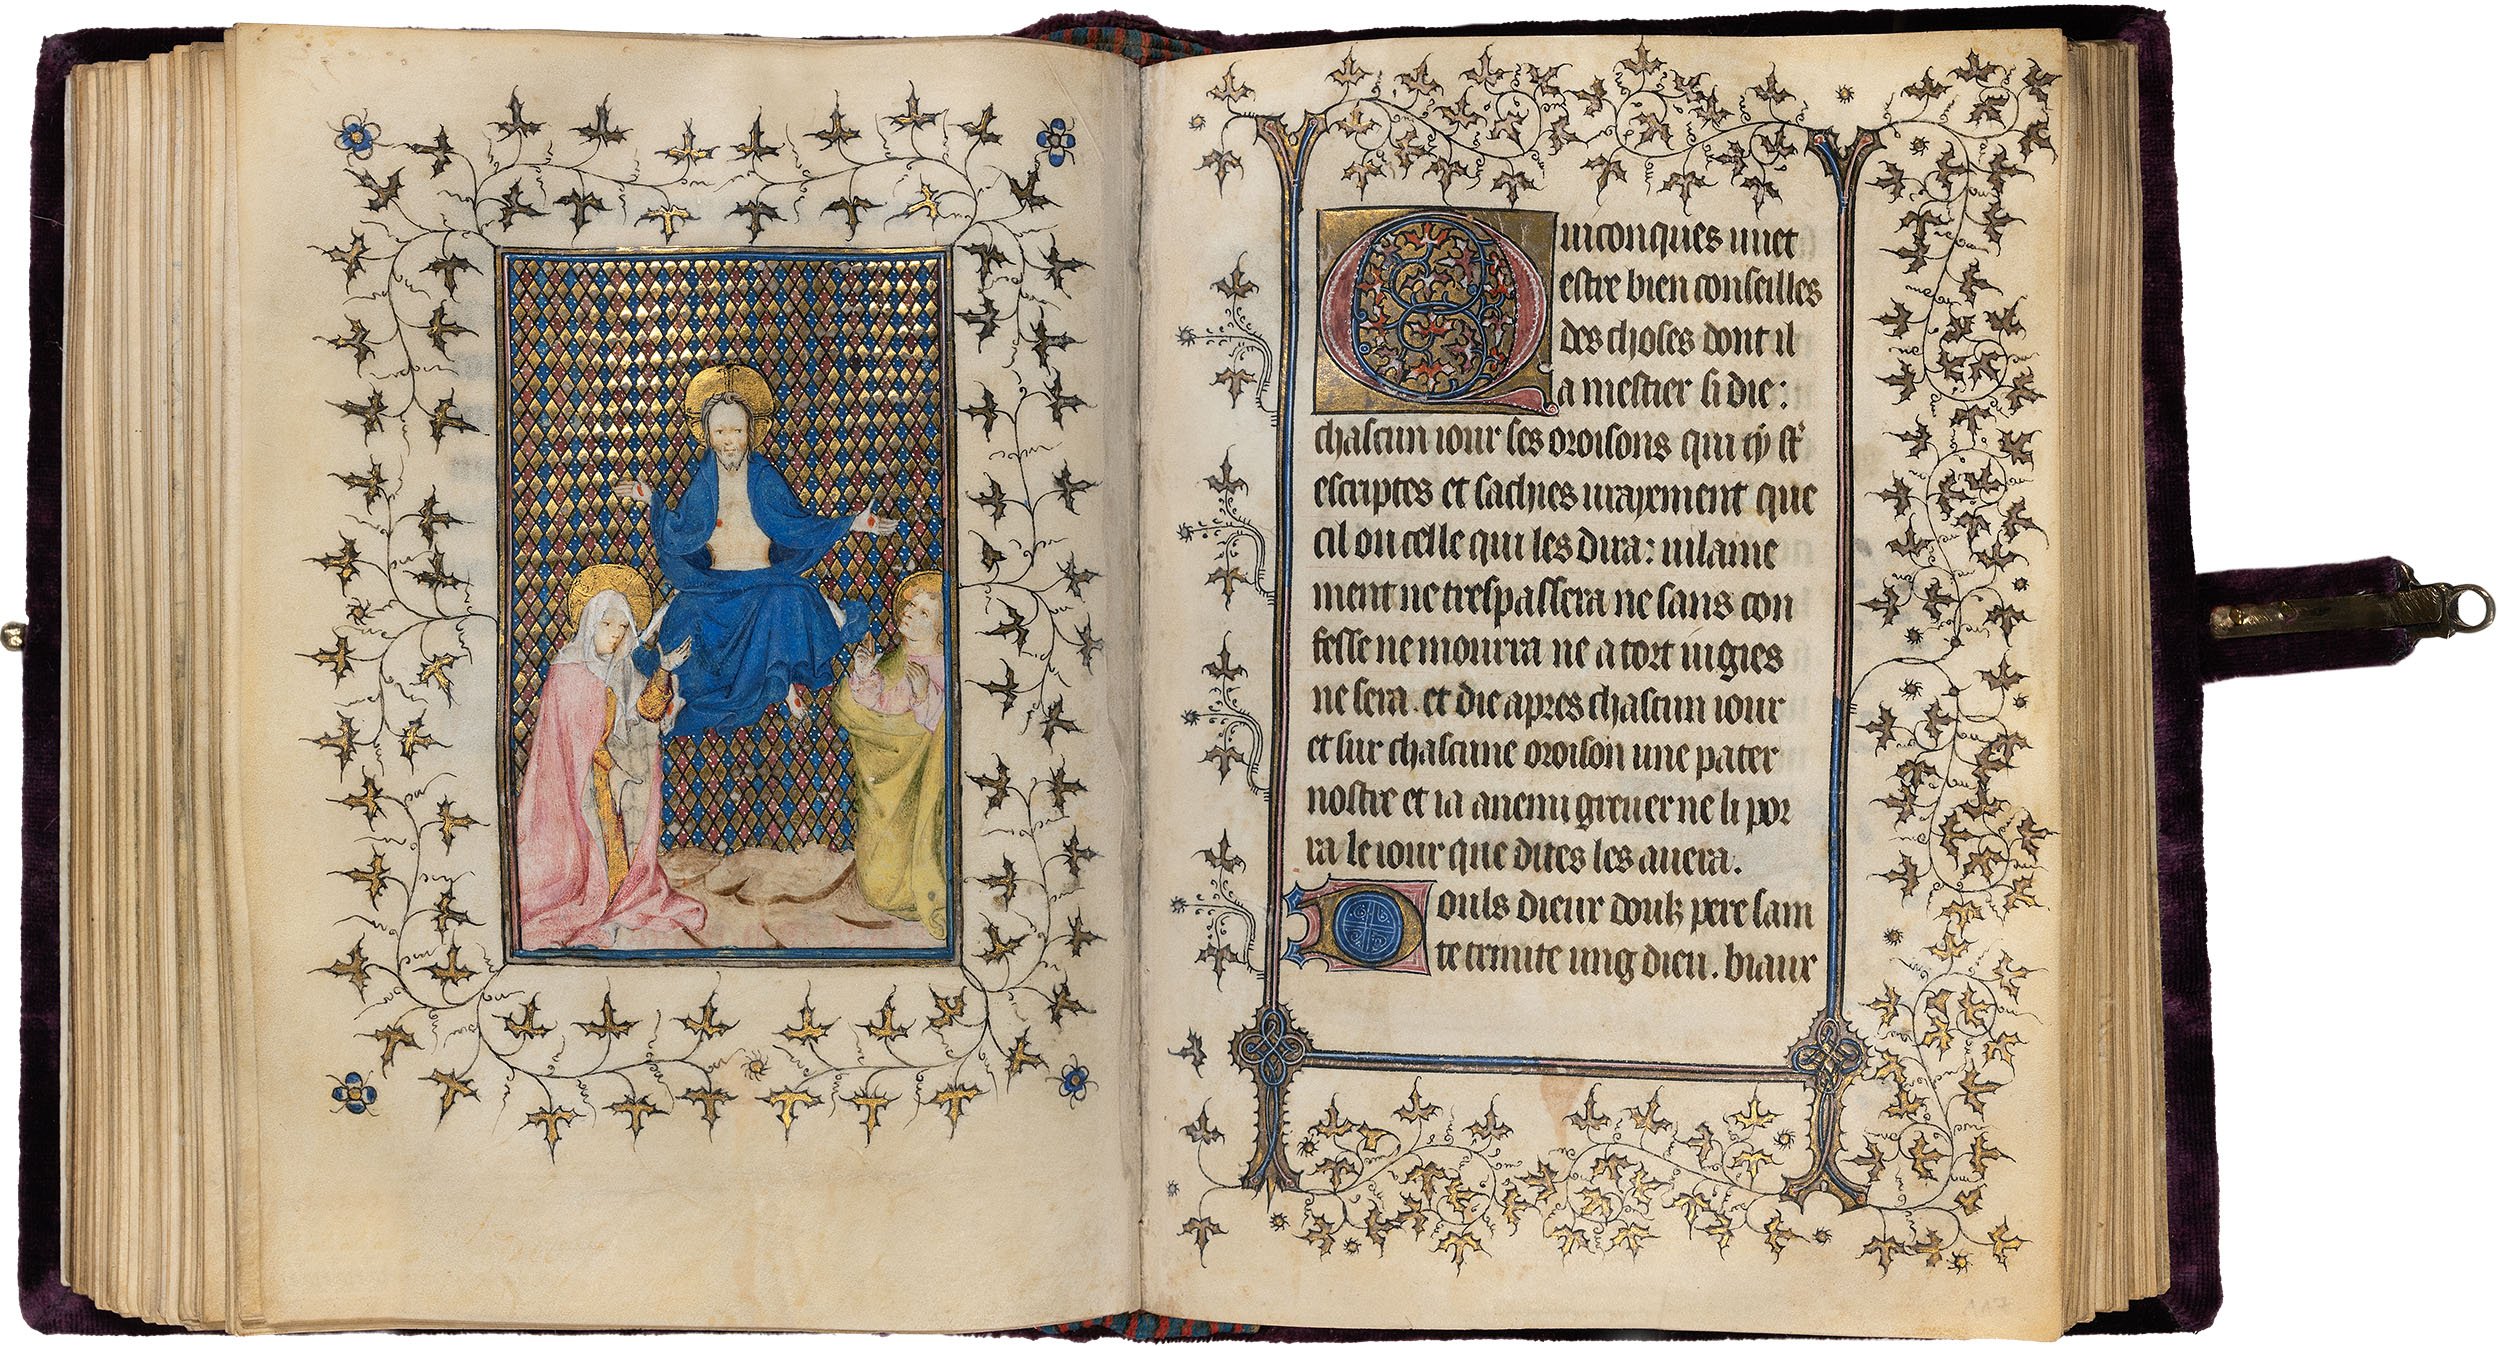 Quiconques vuet
estre bien conseilles
des choses dont il
a mestier si die:
chascun iour ses oroisons qui cy st
escriptes et sachies vrayement que
cil ou celle qui les dira: vilaine
ment ne trespassera ne sans con
fesse ne mourra ne a tort iugies
ne sera. et die apres chascun iour
et sur chascune oroison une pater
nostre et ia anemi greuer ne li por
ra le iour que dites les auera.
Douls dieux doulz pere sain
te trinite ung dieu. biaux
117